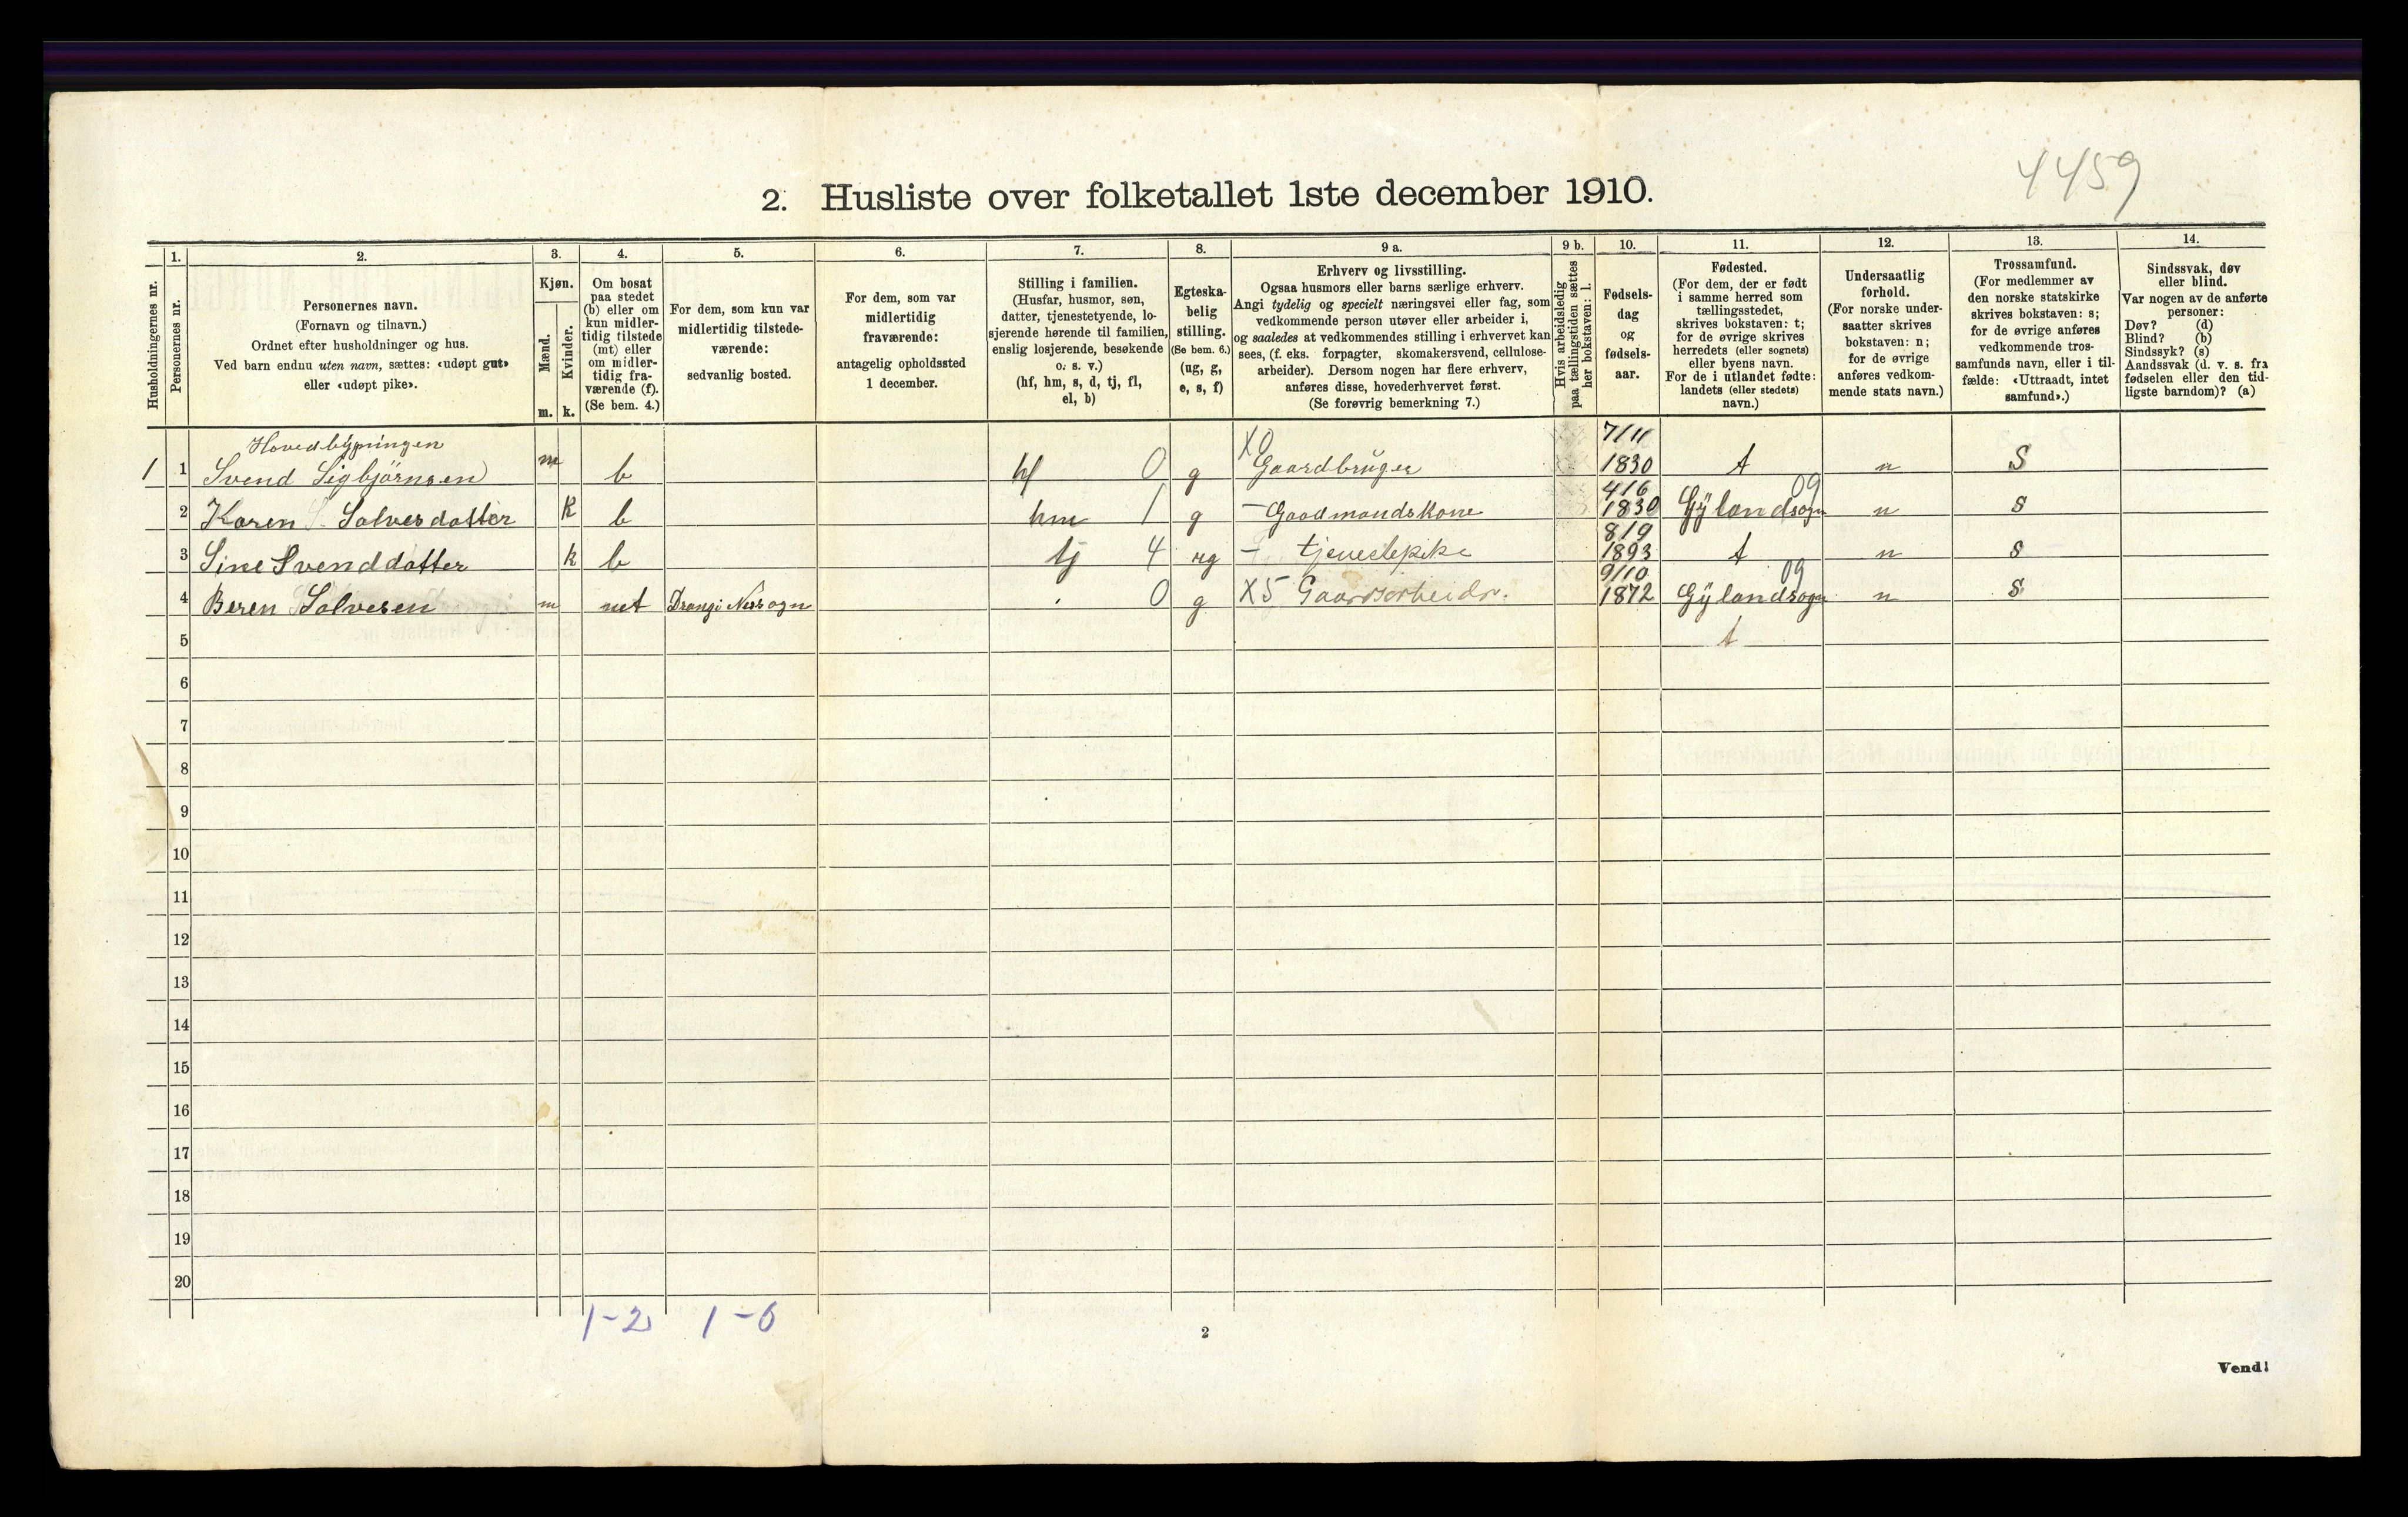 4459
2. Husliste over folketallet 1ste december 1910.
Husholdningernes nr.
1.
Personernes nr.
2.
Personernes navn.
(Fornavn og tilnavn.)
Ordnet efter husholdninger og hus.
Ved barn endnu uten navn, sættes: «udøpt gut»
eller «udøpt pike».
3.
Kjøn.
Mænd.
m.
Kvinder.
k.
4.
Om bosat
paa stedet
(b) eller om
kun midler-
tidig tilstede
(mt) eller
om midler-
tidig fra-
værende (f).
(Se bem. 4.)
5.
For dem, som kun var
midlertidig tilstede-
værende:
sedvanlig bosted.
6.
For dem, som var
midlertidig
fraværende:
antagelig opholdssted
1 december.
7.
Stilling i familien.
(Husfar, husmor, søn,
datter, tjenestetyende, lo-
sjerende hørende til familien,
enslig losjerende, besøkende
o. s. v.)
(hf, hm, s, d, tj, fl,
el, b)
8.
Egteska-
belig
stilling.
(Se bem. 6.)
(ug, g,
e, s, f)
9 a.
Erhverv og livsstilling.
Ogsaa husmors eller barns særlige erhverv.
Angi tydelig og specielt næringsvei eller fag, som
vedkommende person utøver eller arbeider i,
og saaledes at vedkommendes stilling i erhvervet kan
sees, (f. eks. forpagter, skomakersvend, cellulose-
arbeider). Dersom nogen har flere erhverv,
anføres disse, hovederhvervet først.
(Se forøvrig bemerkning 7.)
9 b.
Hvis arbeidsledig
paa tællingstiden sættes
her bokstaven: l.
10.
Fødsels-
dag
og
fødsels-
aar.
11.
Fødested.
(For dem, der er født
i samme herred som
tællingsstedet,
skrives bokstaven: t;
for de øvrige skrives
herredets (eller sognets)
eller byens navn.
For de i utlandet fødte:
landets (eller stedets)
navn.)
12.
Undersaatlig
forhold.
(For norske under-
saatter skrives
bokstaven: n;
for de øvrige
anføres vedkom-
mende stats navn.)
13.
Trossamfund.
(For medlemmer av
den norske statskirke
skrives bokstaven: s;
for de øvrige anføres
vedkommende tros-
samfunds navn, eller i til-
fælde: «Uttraadt, intet
samfund».)
14.
Sindssvak, døv
eller blind.
Var nogen av de anførte
personer:
Døv? (d)
Blind? (b)
Sindssyk? (s)
Aandssvak (d. v. s. fra
fødselen eller den tid-
ligste barndom)? (a)
Hovedbygningen
1 1 Svend Sigbjörnsen m b hf 0 g X0 Gaardbruger 7/11 1830 t n S
2 Karen Salvesdatter k b hm 1 g – Gaadmandskone 4/6 1830 Gÿlandsogn 09 n s
3 Sine Svenddatter k b tj 4 ug – tjenestepike 8/9 1893 t n s
4 Beren Salvesen m mt Drangi Nessogn 0 g X5 Gaardsarbeidr. 9/10 1872 Gÿlandsogn 09 n s
5 t
6
7
8
9
10
11
12
13
14
15
16
17
18
19
20
1-2 1-0
2
Vend!